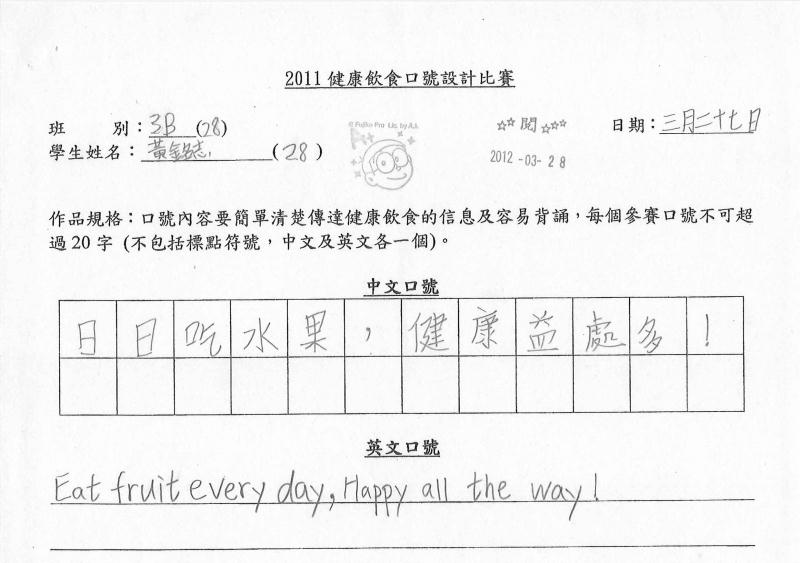 2011健康飲食口號設計比賽
班 別：3B (28)
學生姓名：黃銘志 (28)
© Fujiko Pro Lic. by A.I.
A++
☆☆ 閱 ☆☆☆
2012-03-28
日期：三月二十七日
作品規格：口號內容要簡單清楚傳達健康飲食的信息及容易背誦，每個參賽口號不可超
過20字 (不包括標點符號，中文及英文各一個)。
中文口號
日日吃水果，健康益處多！
英文口號
Eat fruit every day, Happy all the way!